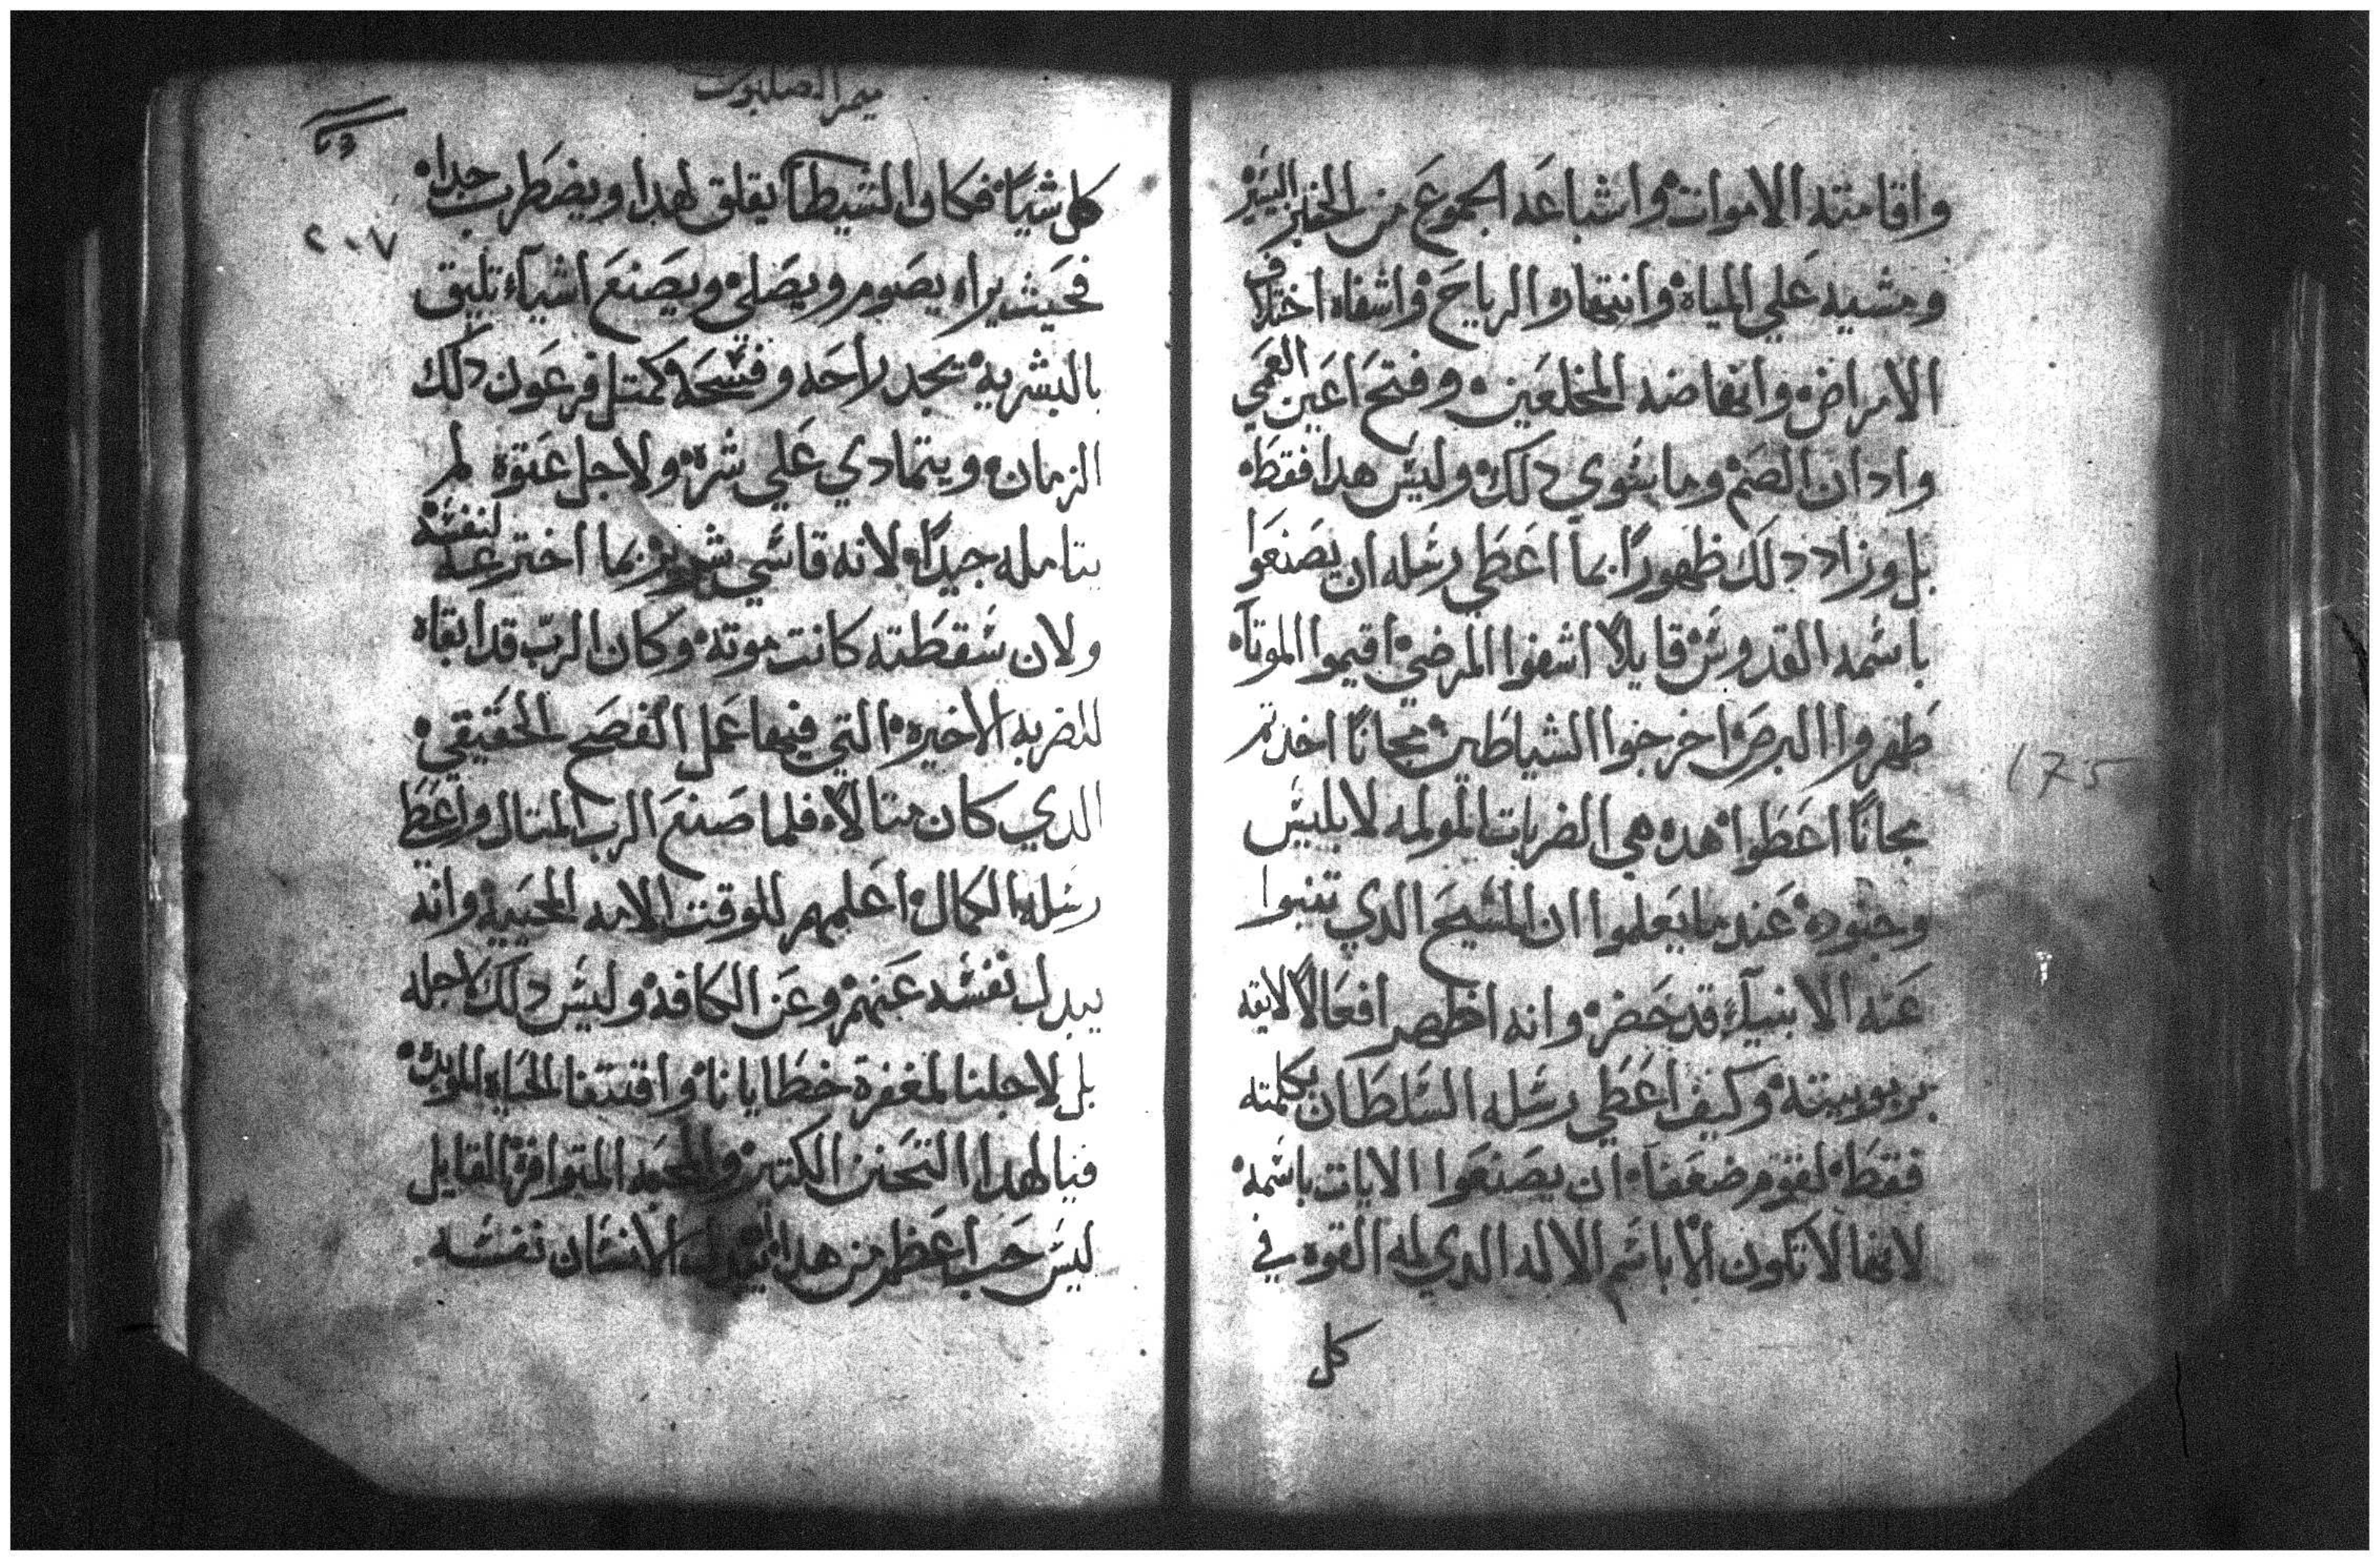 واقامته الاموات واشباعه الجموع من الخبز اليسير
ومشيه علي المياه وانتهاره الرياح واشفاه اختلاف
الامراض وانهاضه المخلعين وفتح اعين العمي
وادان الصم وما سوي دلك وليس هدا فقط
بل وزاد دلك ظهورًا بما اعطي رسله ان يصنعوا
باسمه القدوس قايلاً اشفوا المرضي اقيموا الموتاه
طهروا البرص اخرجوا الشياطين مجانًا اخدتم
مجانًا اعطوا هده هي الضربات المولمه لابليس
وجنوده عند ما يعلموا ان المسيح الدي تنبوا
عنه الانبياء قد حضر وانه اظهر افعالاً لايقه
بربوبيته وكيف اعطي رسله السلطان بكلمته
فقط لقوم ضعفآ ان يصنعوا الايات باسمه
لانها لا تكون الا باسم الاله الدي له القوه في
كل
175
ميمر الصلبوت
٢٠٧
كل شيًا فكان الشيطان يقلق لهدا ويضطرب جدا
فحيث يراه يصوم ويصلي ويصنع اشيآء تليق
بالبشريه تجد راحه وفسحه كمتل فرعون دلك
الزمان ويتمادي علي شره ولاجل عتوه لم
يتامله جيدًا لانه قاسي بما اخترعه لنفسه
ولان سقطته كانت موته وكان الرب قد ابقاه
للضربه الاخيره التي فيها عمل الفصح الحقيقي
الدي كان متالاً فلما صنع الرب المتال واعظ
رسله بالكمال اعلمهم للوقت الامه المحييه وانه
يبدل نفسه عنهم وعن الكافه وليس دلك لاجله
بل لاجلنا لمغفرة خطايانا واقتنا الحياه الموبده
فيا لهدا التحنن الكتير والمتوافره القايل
ليس حب اعظم من هدا ان يبدل الانسان نفسه